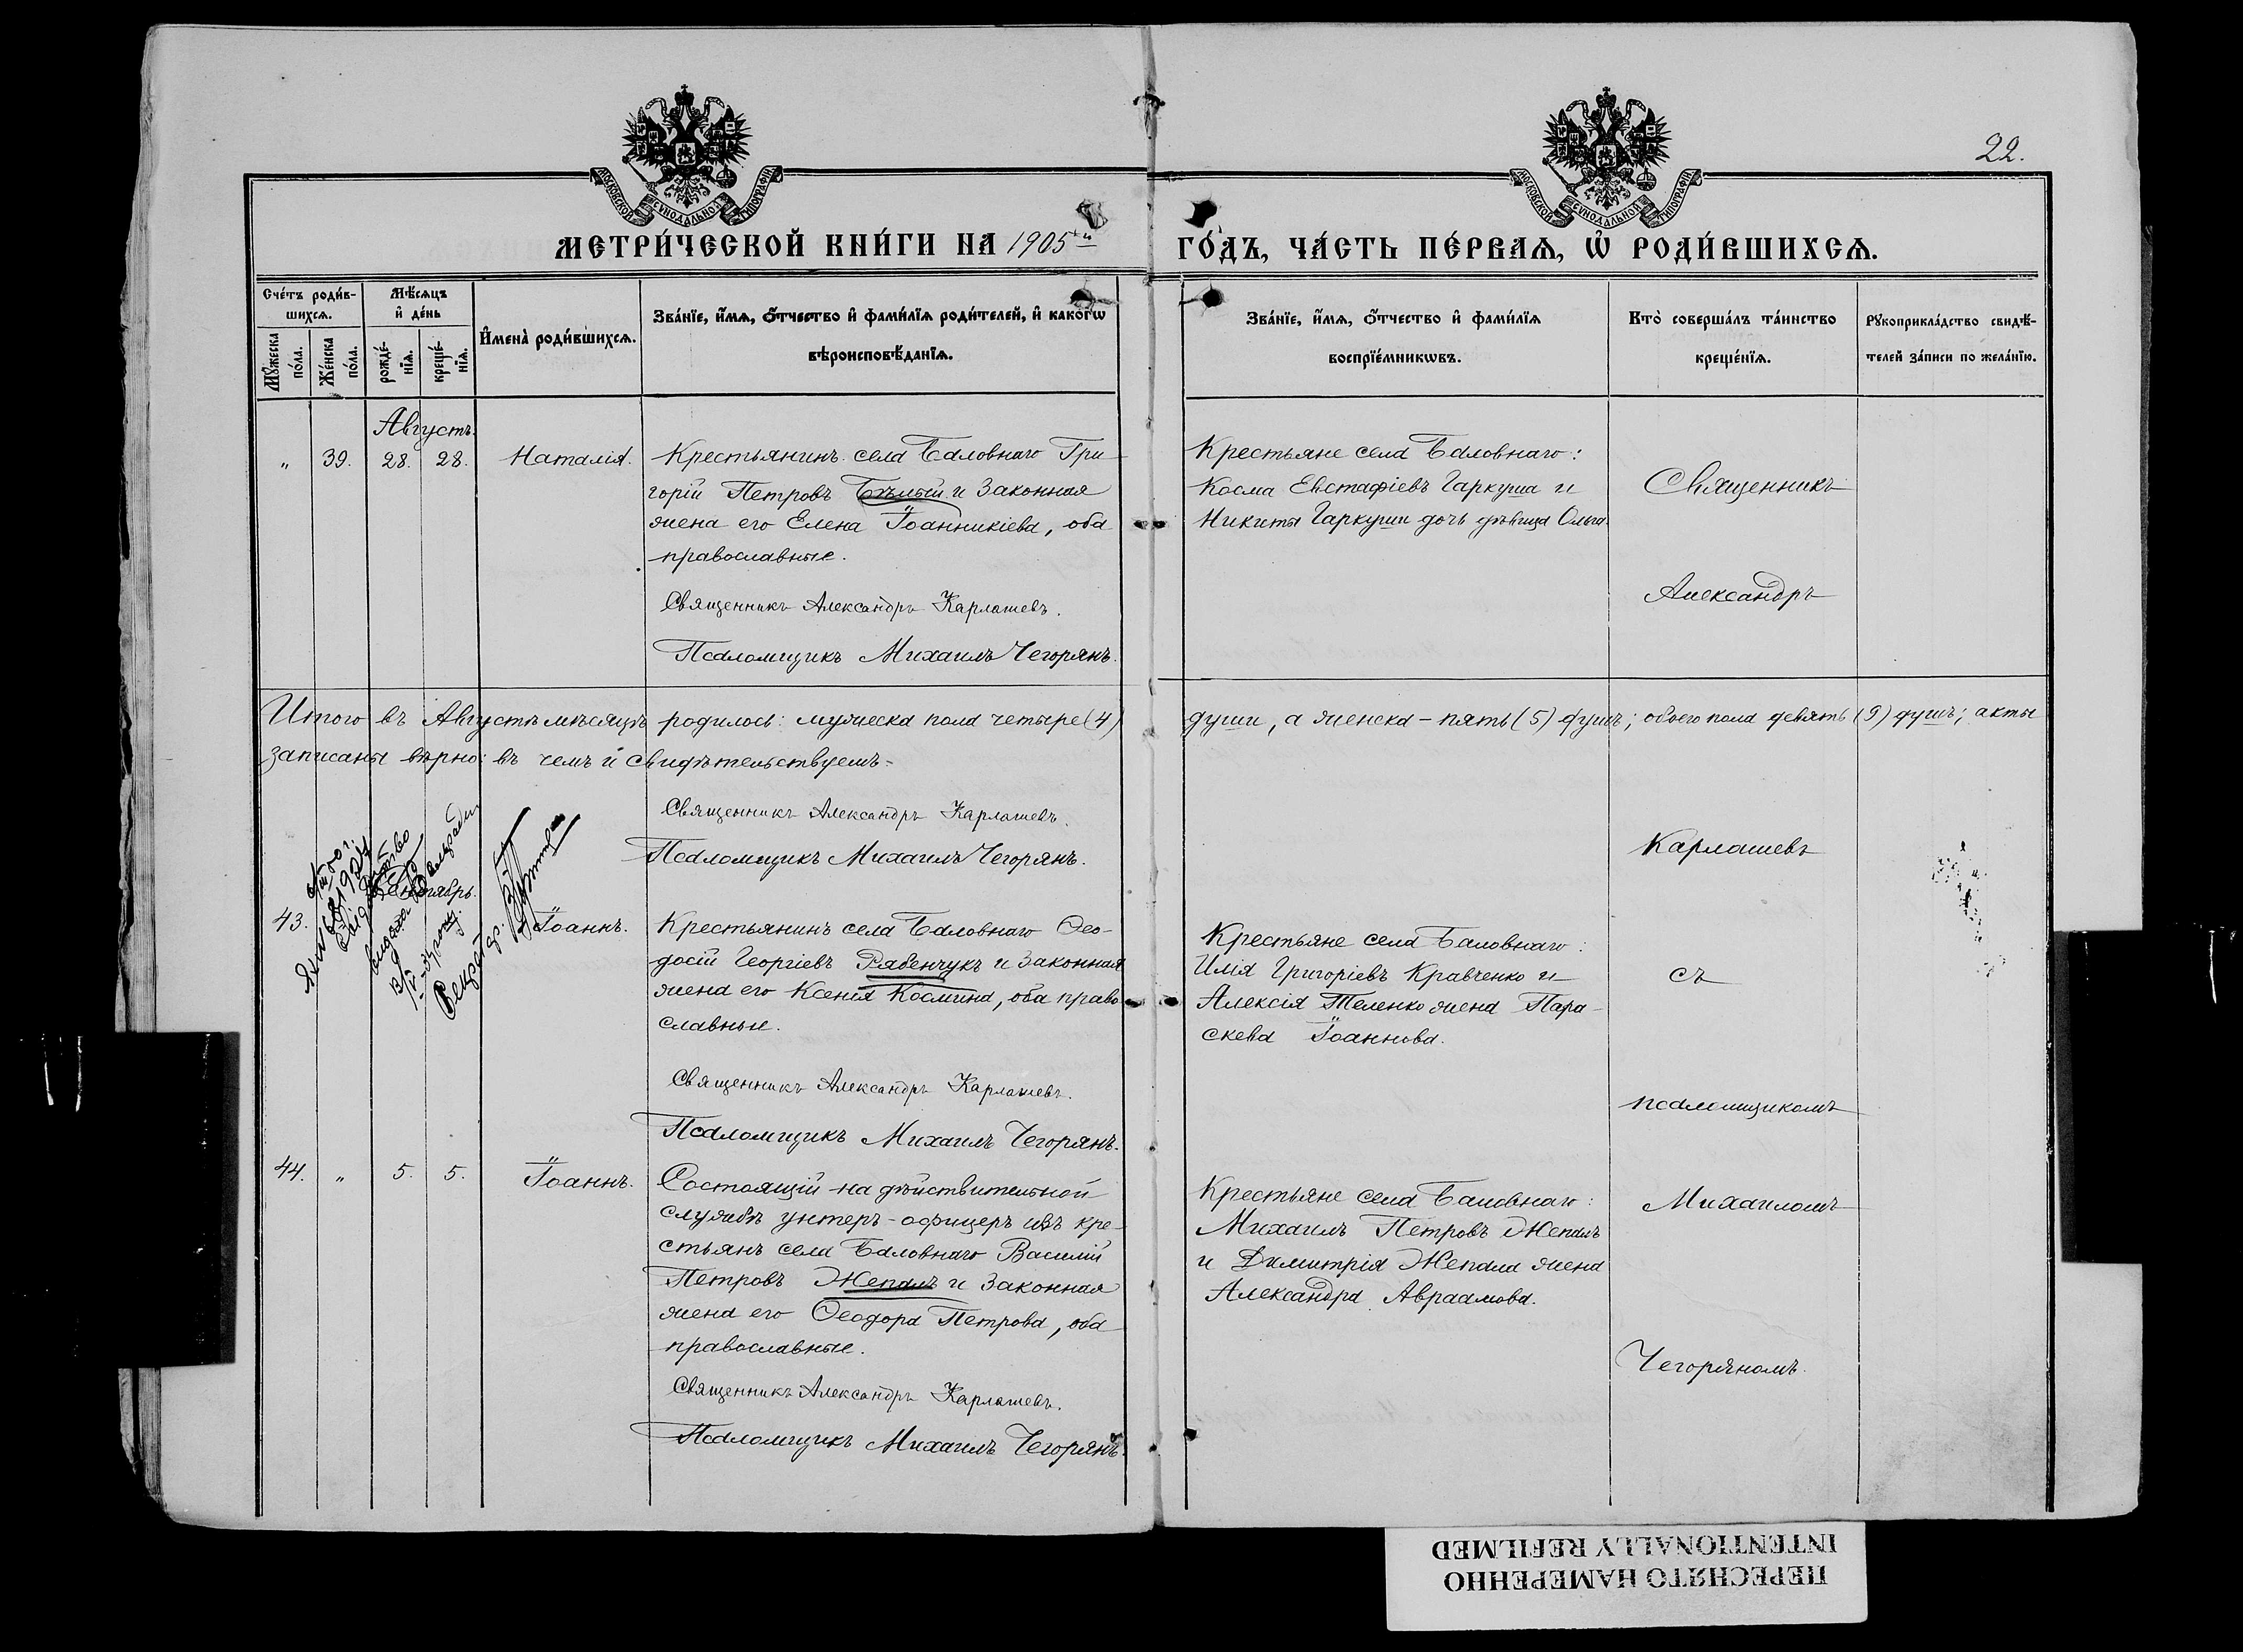 22.
МОСКОВСКОЙ СѴНОДАЛЬНОЙ ТИПОГРАФІИ
МОСКОВСКОЙ СѴНОДАЛЬНОЙ ТИПОГРАФІИ
МЕТРИ́ЧЕСКОЙ КНИ́ГИ НА 1905й
ГО́ДЪ, ЧА́СТЬ ПЕ́РВАѦ, Ѡ҆ РОДИ́ВШИХСѦ.
Сче́тъ роди́в-
шихсѧ.
Мꙋ́жеска по́ла.
Же́нска по́ла.
Мѣ́сѧцъ
и҆ де́нь
рожде́-
нїѧ.
креще́-
нїѧ.
И҆мена̀ роди́вшихсѧ.
Зва́нїе, и҆́мѧ, ѻ҆́тчество и҆ фами́лїѧ роди́телей, и҆ како́гѡ
вѣроисповѣ́данїѧ.
Зва́нїе, и҆́мѧ, ѻ҆́тчество и҆ фами́лїѧ
воспрїе́мникѡвъ.
Кто̀ соверша́лъ та́инство
креще́нїѧ.
Рꙋкоприкла́дство свидѣ́-
телей за́писи по жела́нїю.
Августъ.
„ 39. 28. 28. Наталія.
Крестьянинъ села Баловнаго Гри-
горій Петровъ Бѣлый и законная
жена его Елена Іоанникіева, оба
православные.
Священникъ Александръ Карлашевъ.
Псаломщикъ Михаилъ Чегорянъ.
Крестьяне села Баловнаго:
Косма Евстафіевъ Гаркуша и
Никиты Гаркуши дочь дѣвица Ольга.
Священникъ
Александръ
Итого въ Августѣ мѣсяцѣ родилось: мужеска пола четыре (4) души, а женска – пять (5) душъ; обоего пола девять (9) душъ; акты
записаны вѣрно: въ чемъ и свидѣтельствуемъ.
Священникъ Александръ Карлашевъ.
Псаломщикъ Михаилъ Чегорянъ.
Карлашевъ
Сентябрь.
43. Іоаннъ.
Крестьянинъ села Баловнаго Ѳео-
досій Георгіевъ Рябенчукъ и законная
жена его Ксенія Космина, оба право-
славные.
Священникъ Александръ Карлашевъ.
Псаломщикъ Михаилъ Чегорянъ.
Крестьяне села Баловнаго:
Илія Григоріевъ Кравченко и
Алексія Теленко жена Пара-
скева Іоаннова.
съ
псаломщикомъ
44. „ 5. 5. Іоаннъ.
Состоящій на дѣйствительной
службѣ унтеръ-офицеръ изъ кре-
стьянъ села Баловнаго Василій
Петровъ Жепалъ и законная
жена его Ѳеодора Петрова, оба
православные.
Священникъ Александръ Карлашевъ.
Псаломщикъ Михаилъ Чегорянъ.
Крестьяне села Баловнаго:
Михаилъ Петровъ Жепалъ
и Димитрія Жепала жена
Александра Авраамова.
Михаиломъ
Чегоряномъ.
ПЕРЕСНЯТО НАМЕРЕННО
INTENTIONALLY REFILMED